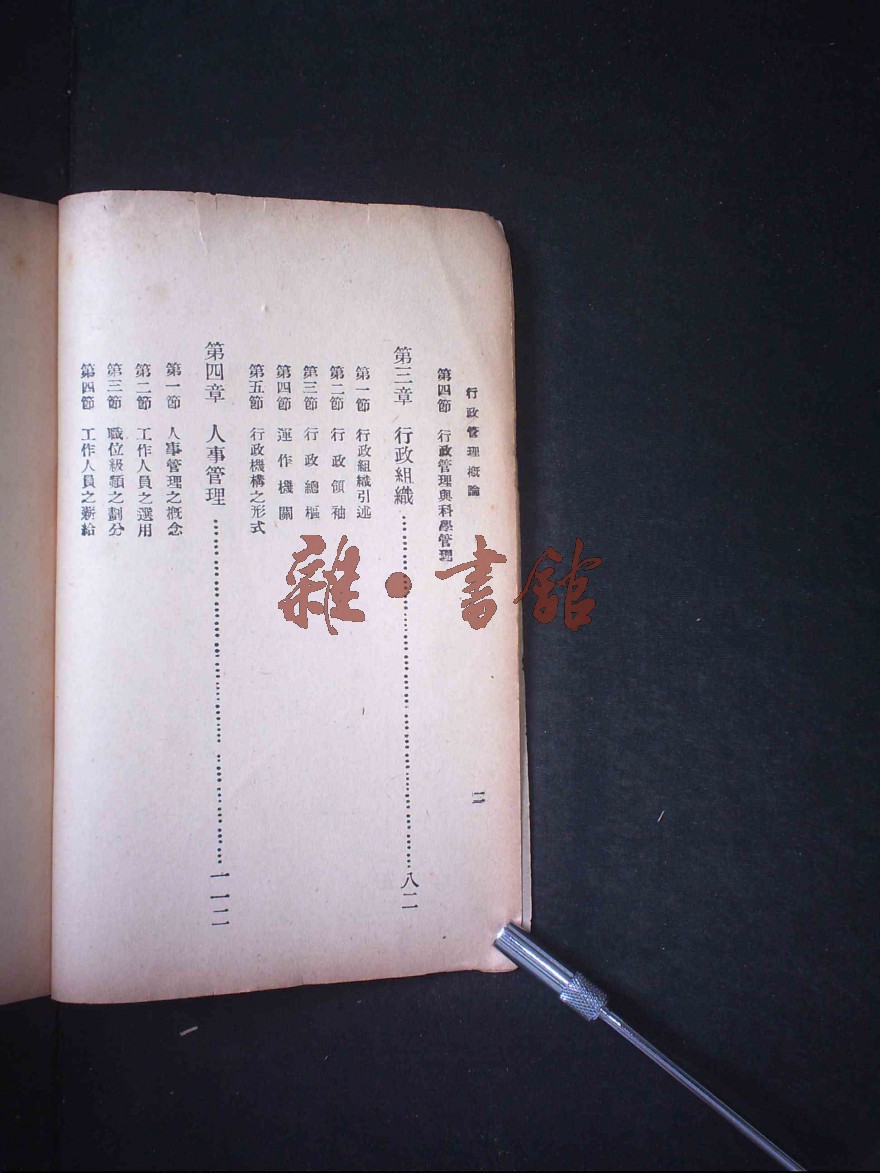 行政管理概論
二
第四節 行政管理與科學管理
第三章 行政組織……………………………………八二
第一節 行政組織引述
第二節 行政領袖
第三節 行政總樞
第四節 運作機關
第五節 行政機構之形式
第四章 人事管理……………………………………一一二
第一節 人事管理之概念
第二節 工作人員之選用
第三節 職位級類之劃分
第四節 工作人員之薪給
雜·書館